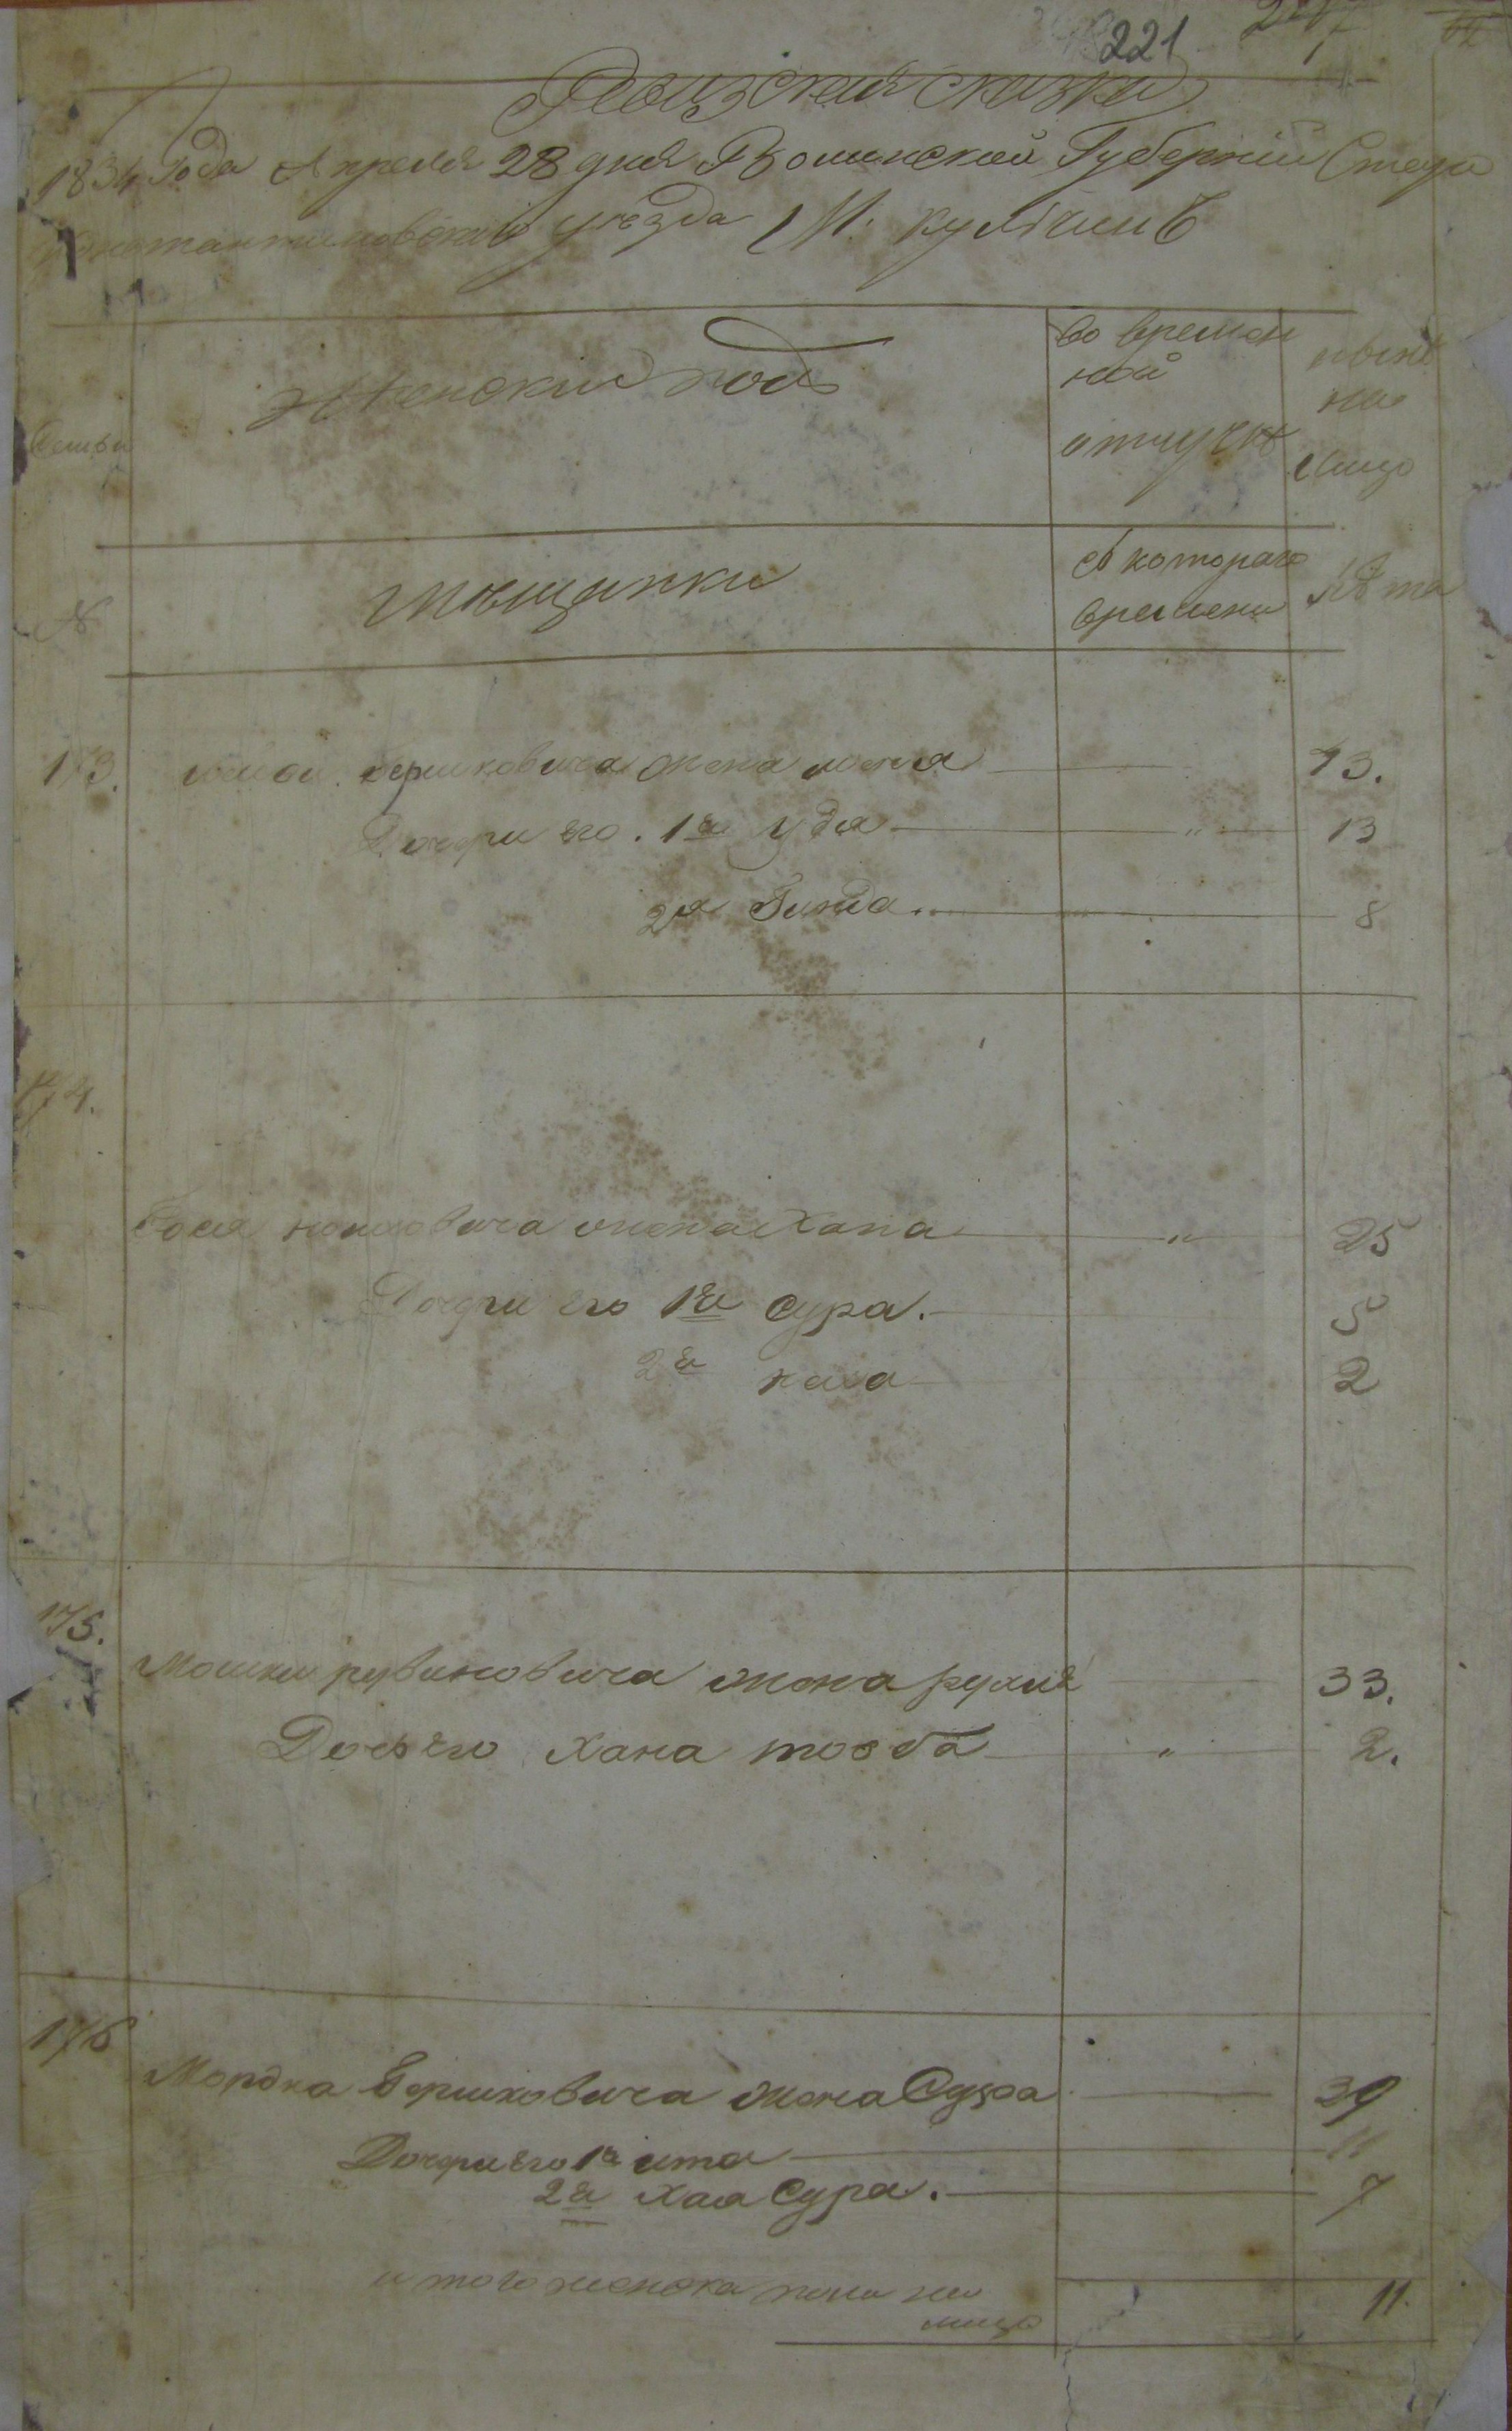 221
Ревизская сказка
1834 Года Апреля 28 дня Волынской Губернии Старо
константиновского уезда М. Кульчинъ
Семьи
Женский полъ
во времен
ной
отлучке
ныне
на
лицо
№
мещанки
съ котораго
времени
Лета
173.
Берковича жена 
Дочери его. 1я Удя 13
2я Гинда 8
174.
жена Хана 25
Дочери его 1я Сура. 5
2я 2
175.
Мошки рувиновича жена рухля 33.
Дочь его Хана товба 2.
176
Мордка Берковича жена Сура 39
Дочери его 1я ита 11
2я Хая Сура. 7
итого женска пола на
лицо 11.